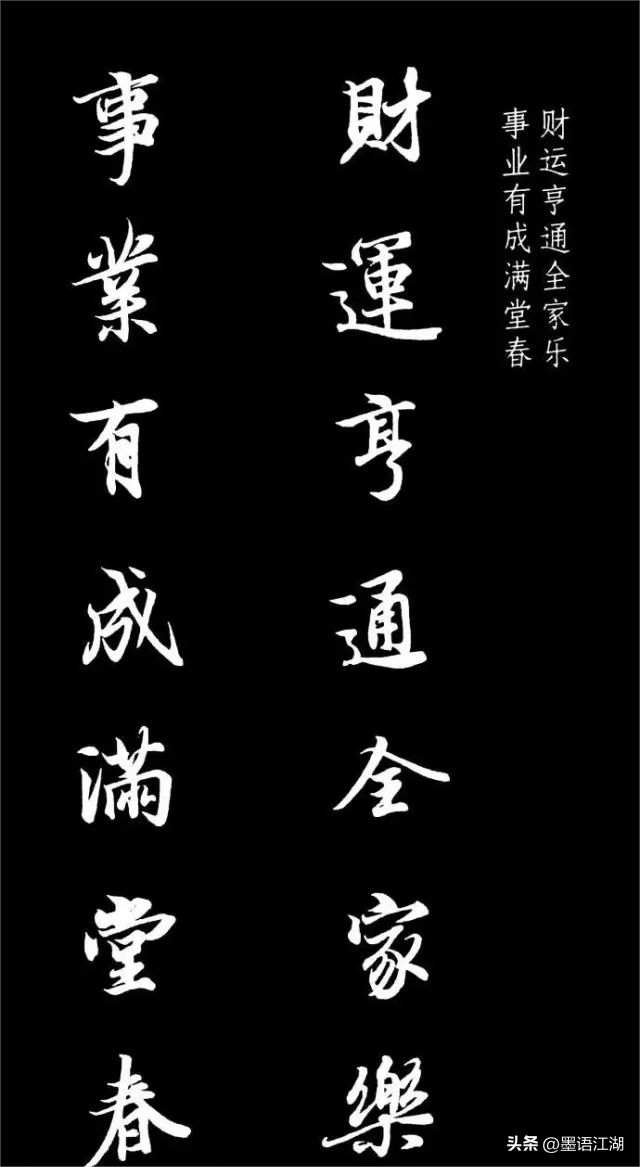 财运亨通全家乐
事业有成满堂春
財運亨通全家樂
事業有成滿堂春
头条 @墨语江湖